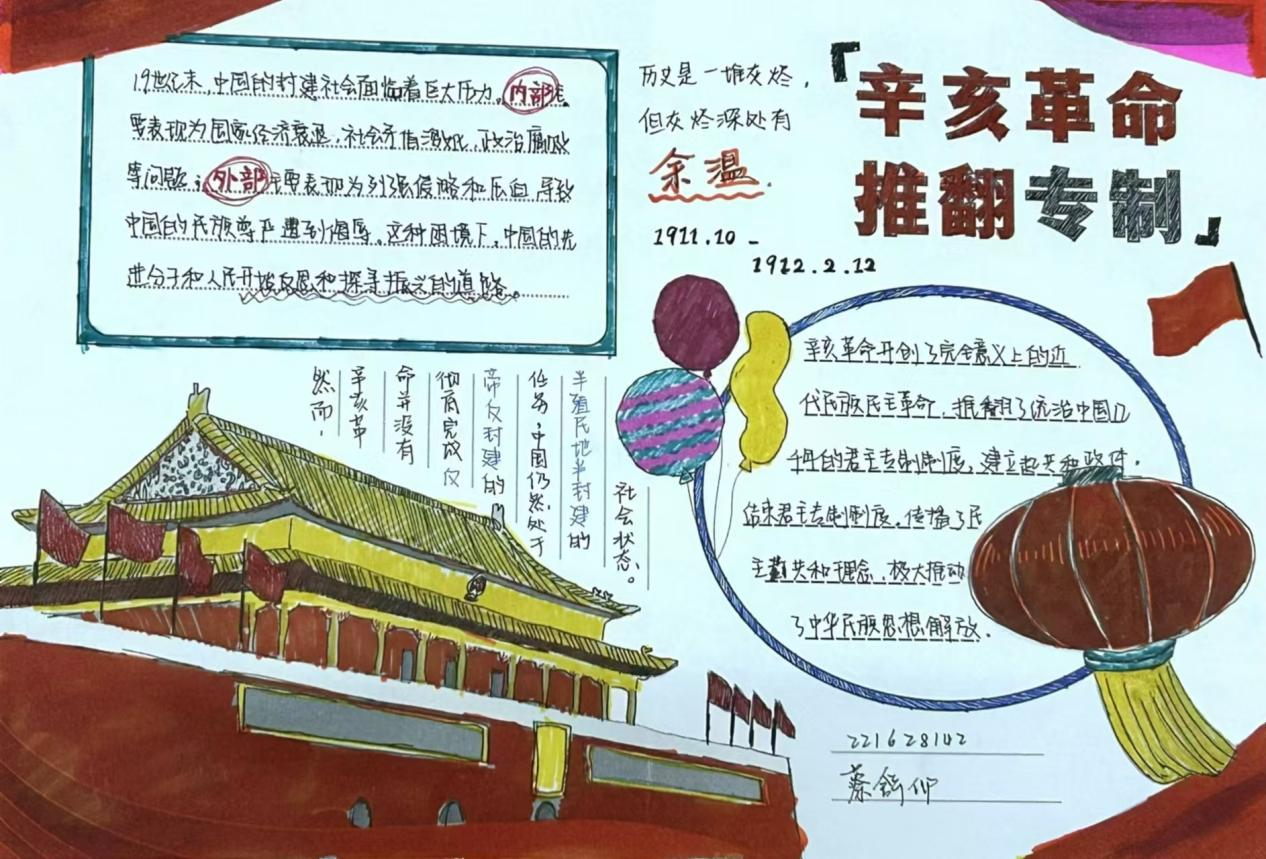 19世纪末,中国的封建社会面临着巨大压力,内部主
要表现为国家经济衰退、社会矛盾激化、政治腐败
等问题;外部主要表现为列强侵略和压迫,导致
中国的民族尊严遭到侮辱。这种困境下,中国的先
进分子和人民开始反思和探寻振兴的道路。
历史是一堆灰烬,
但灰烬深处有
余温.
1911.10 -
1912.2.12
「辛亥革命
推翻专制」
然而,
辛亥革
命并没有
彻底完成反
帝反封建的
任务,中国仍然处于
半殖民地半封建的
社会状态。
辛亥革命开创了完全意义上的近
代民族民主革命,推翻了统治中国几
千年的君主专制制度,建立起共和政体,
结束君主专制制度,传播了民
主共和理念,极大推动
了中华民族思想解放.
221628142